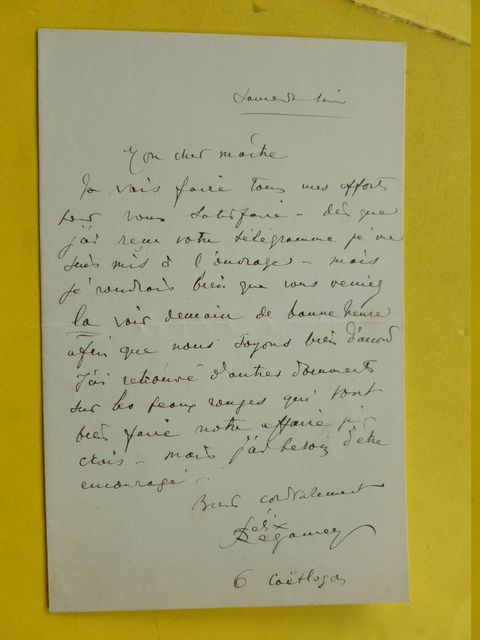 Samedi soir
Mon cher maître
Je vais faire tous mes efforts
pour vous satisfaire - dès que
j'ai reçu votre télégramme je me
suis mis à l'ouvrage - mais
je voudrais bien que vous veniez
la voir demain de bonne heure
afin que nous soyons bien d'accord
J'ai retrouvé d'autres documents
sur les peaux rouges qui vont
bien faire notre affaire je
crois - mais j'ai besoin d'être
encouragé -
Bien cordialement
Félix
Régamey
6 Coëtlogon